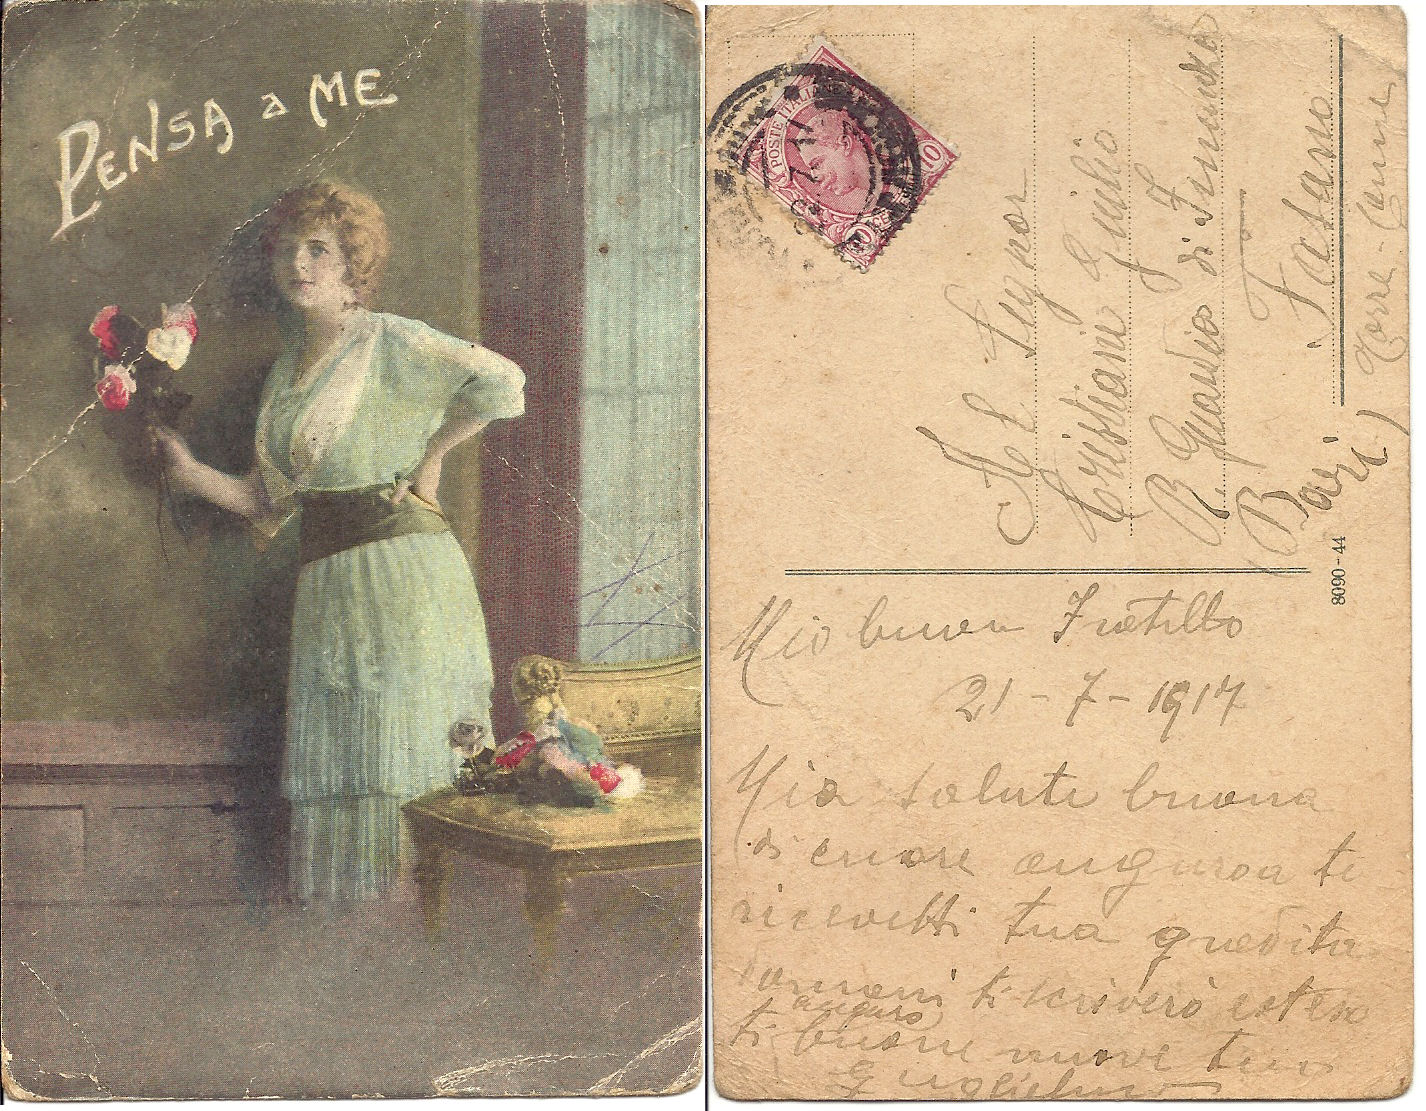 PENSA a ME
POSTE ITALIANE
10 CENT 10
Al Signor
Cristiani Giulio
R. Guardia di Finanza
Fasano
(Bari) Torre-Canne
8090-44
Mio buon Fratello
21-7-1917
Mia salute buona
di cuore auguroa te
ricevetti tua gradita
domani ti scriverò esteso
auguro
ti buone nuove tuo
Guglielmo